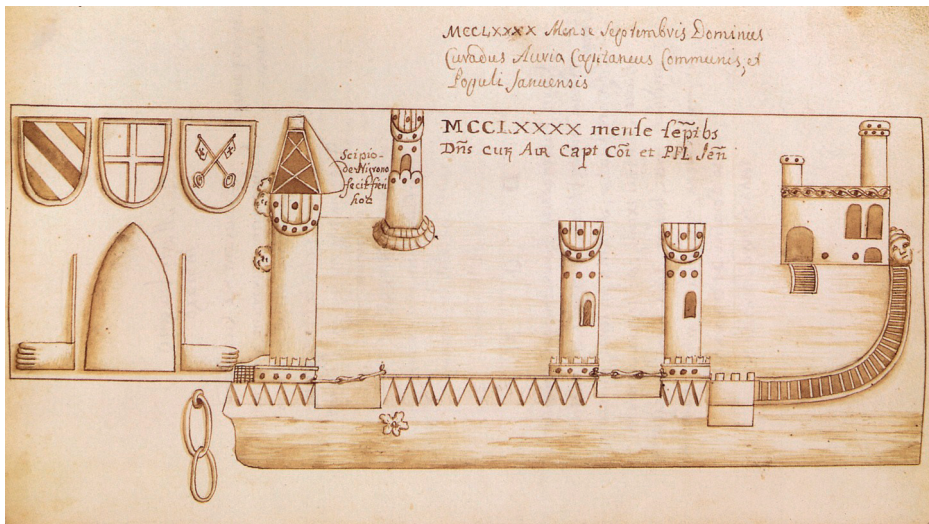 MCCLXXXX Mense Septembris Dominus
Curadus Auria Capitaneus Communis, et
Populi Januensis
MCCLXXXX mense sep̄ibs
Dn̄s cur Aur Capt Cōi et PPL Jen̄
Scipio
de
fecit fieri
hoc